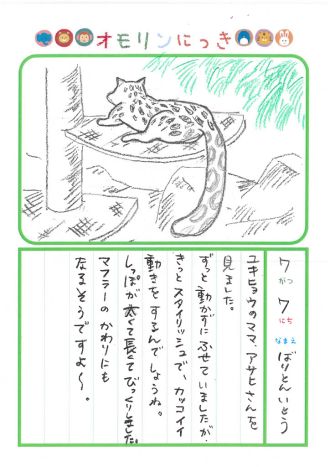 オモリンにっき
7がつ7にち なまえ ばりとんいとう
ユキヒョウのママ、アサヒさんを
見ました。
ずっと動かずにふせていましたが、
きっとスタイリッシュで、カッコイイ
動きをするんでしょうね。
しっぽが太くて長くてびっくりしました。
マフラーのかわりにも
なるそうですよ〜。